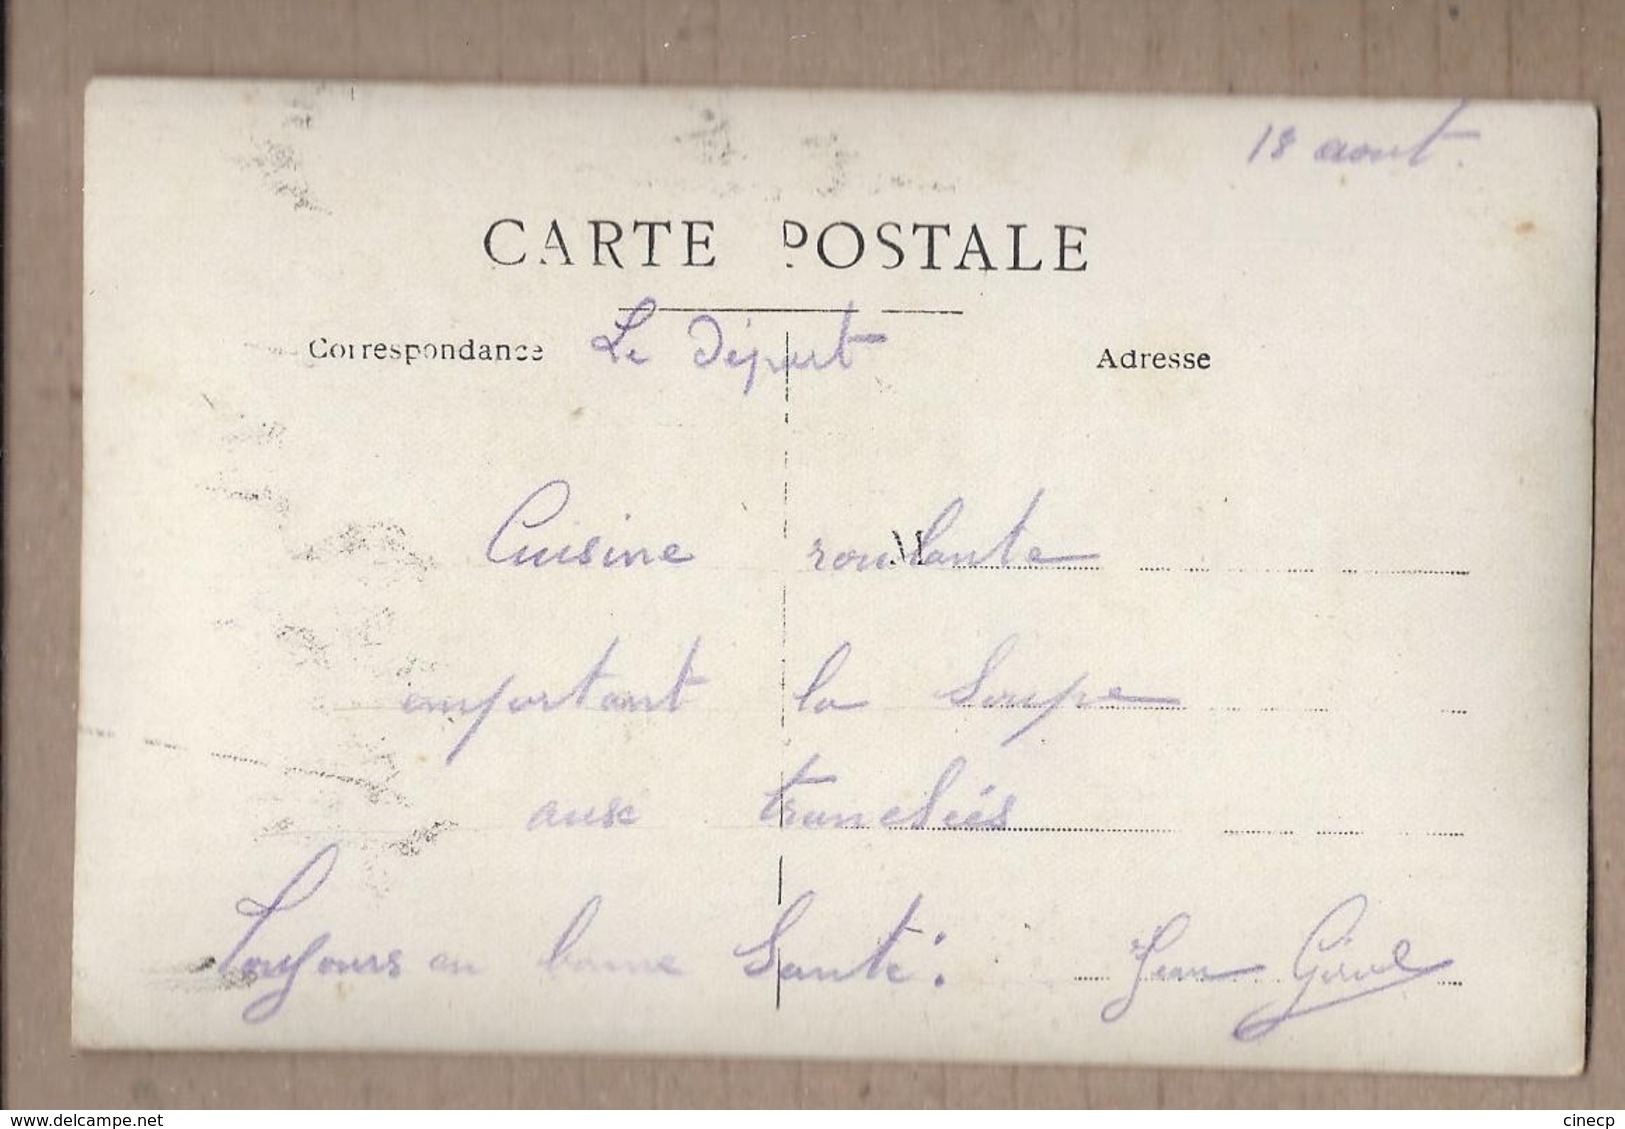 18 aout.
CARTE POSTALE
Correspondance Le Départ Adresse
Cuisine roulante
emportant la Soupe
aux tranchées
Toujours en bonne Santé. Jean
www.delcampe.net
cinecp